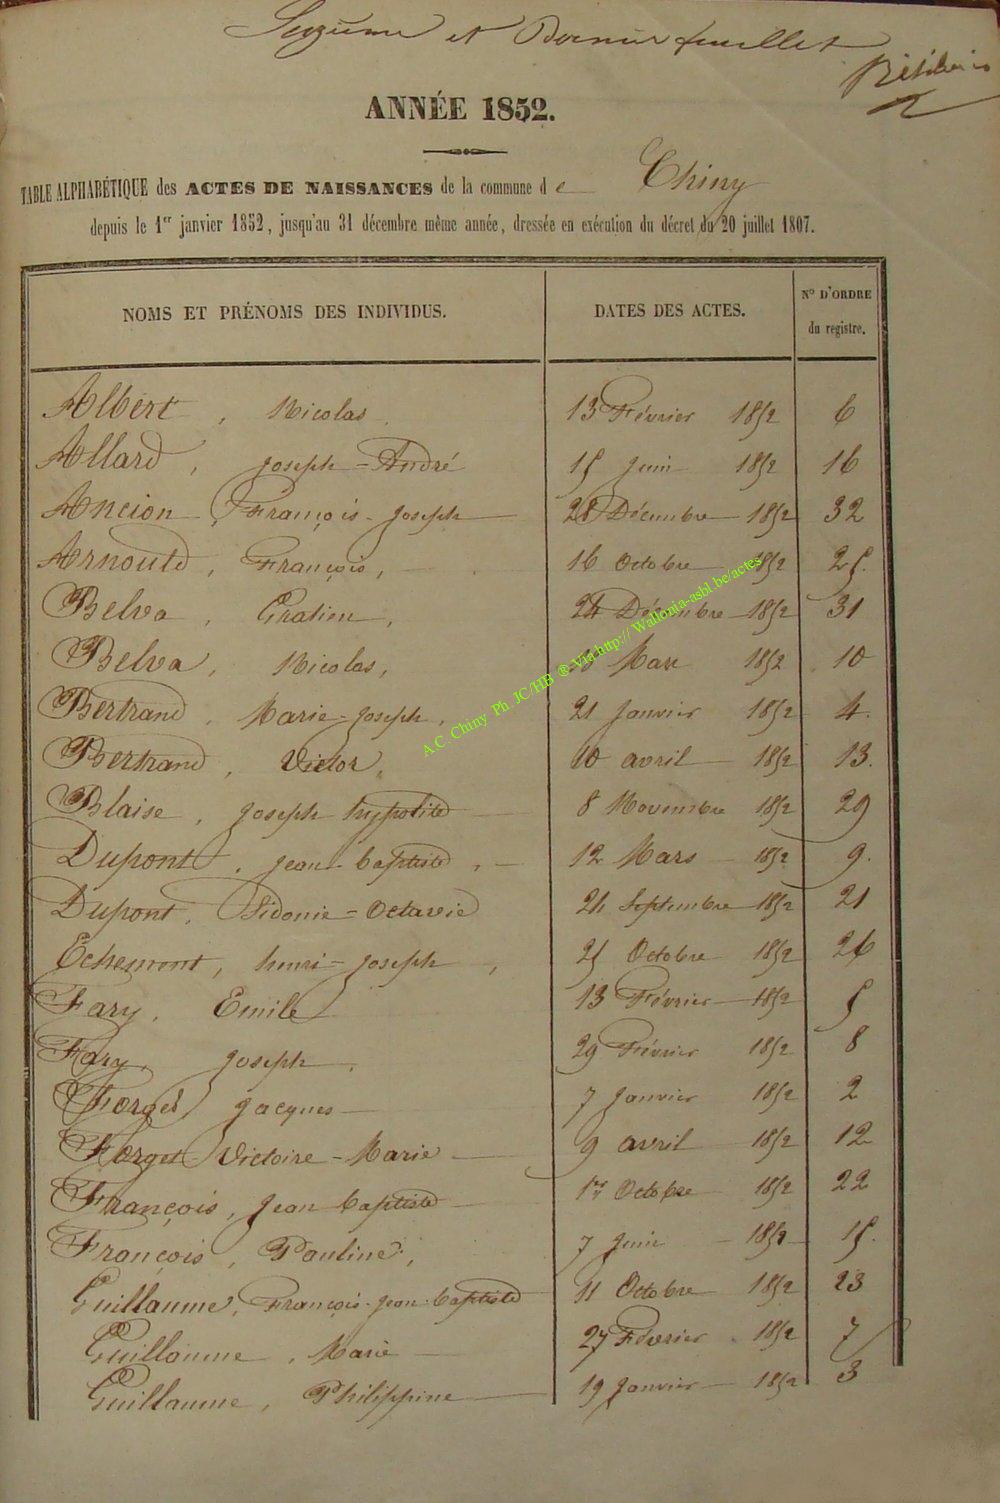 Seizième et Dernier feuillet
ANNÉE 1852.
TABLE ALPHABÉTIQUE des ACTES DE NAISSANCES de la commune de Chiny
depuis le 1er janvier 1852, jusqu'au 31 décembre même année, dressée en exécution du décret du 20 juillet 1807.
NOMS ET PRÉNOMS DES INDIVIDUS. DATES DES ACTES. No D'ORDRE
du registre.
Albert, Nicolas 13 Février 1852 6
Allard, joseph=André 15 juin 1852 16
Ancion, François-joseph 28 Décembre 1852 32
Arnould, François, 16 Octobre 1852 25.
Belva, Gratien, 24 Décembre 1852 31
Belva, Nicolas, Mars 1852 10
Bertrand, Marie-joseph, 21 janvier 1852 4.
Bertrand, Victor, 10 avril 1852 13.
Blaise, joseph hypolite 8 Novembre 1852 29
Dupont, jean-baptiste, 12 Mars 1852 9.
Dupont, Sidonie=Octavie 24 Septembre 1852 21
Echement, henri=joseph, 25 Octobre 1852 26
Fary, Emile 13 Février 1852 5
Fary, joseph, 29 Février 1852 8
Forget jacques 7 janvier 1852 2
Forget Victoire-Marie 9 avril 1852 12
François, jean baptiste 1er Octobre 1852 22
François, Pauline, 7 juin 1852 15.
Guillaume, François-jean-baptiste 11 Octobre 1852 23
Guillaume, Marie 27 Février 1852 7
Guillaume, Philippine 19 janvier 1852 3
A.C. Chiny Ph. JC/HB ® via http:// Wallonia-asbl.be/actes